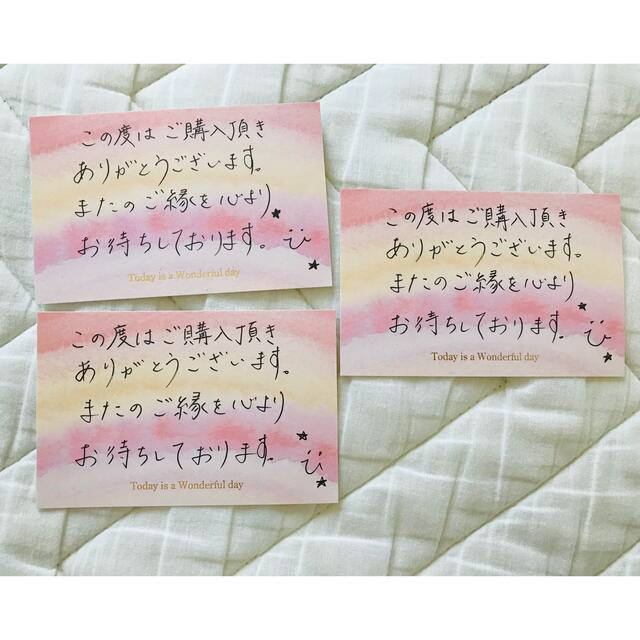 この度は ご購入頂き
ありがとうございます。
またのご縁を心より
お待ちしております。
Today is a Wonderful day
この度は ご購入頂き
ありがとうございます。
またのご縁を心より
お待ちしております。
Today is a Wonderful day
この度は ご購入頂き
ありがとうございます。
またのご縁を心より
お待ちしております。
Today is a Wonderful day